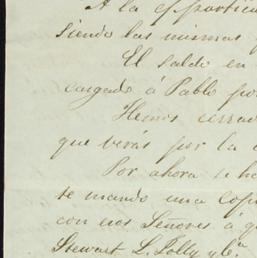 A la
siendo las mismas
El saldo en
cargado á Pablo por
Hemos cerrad
que verás por la c
Por ahora te h
te mando una Cop
con esos Señores á q
Stewart L. Jolly y Cª